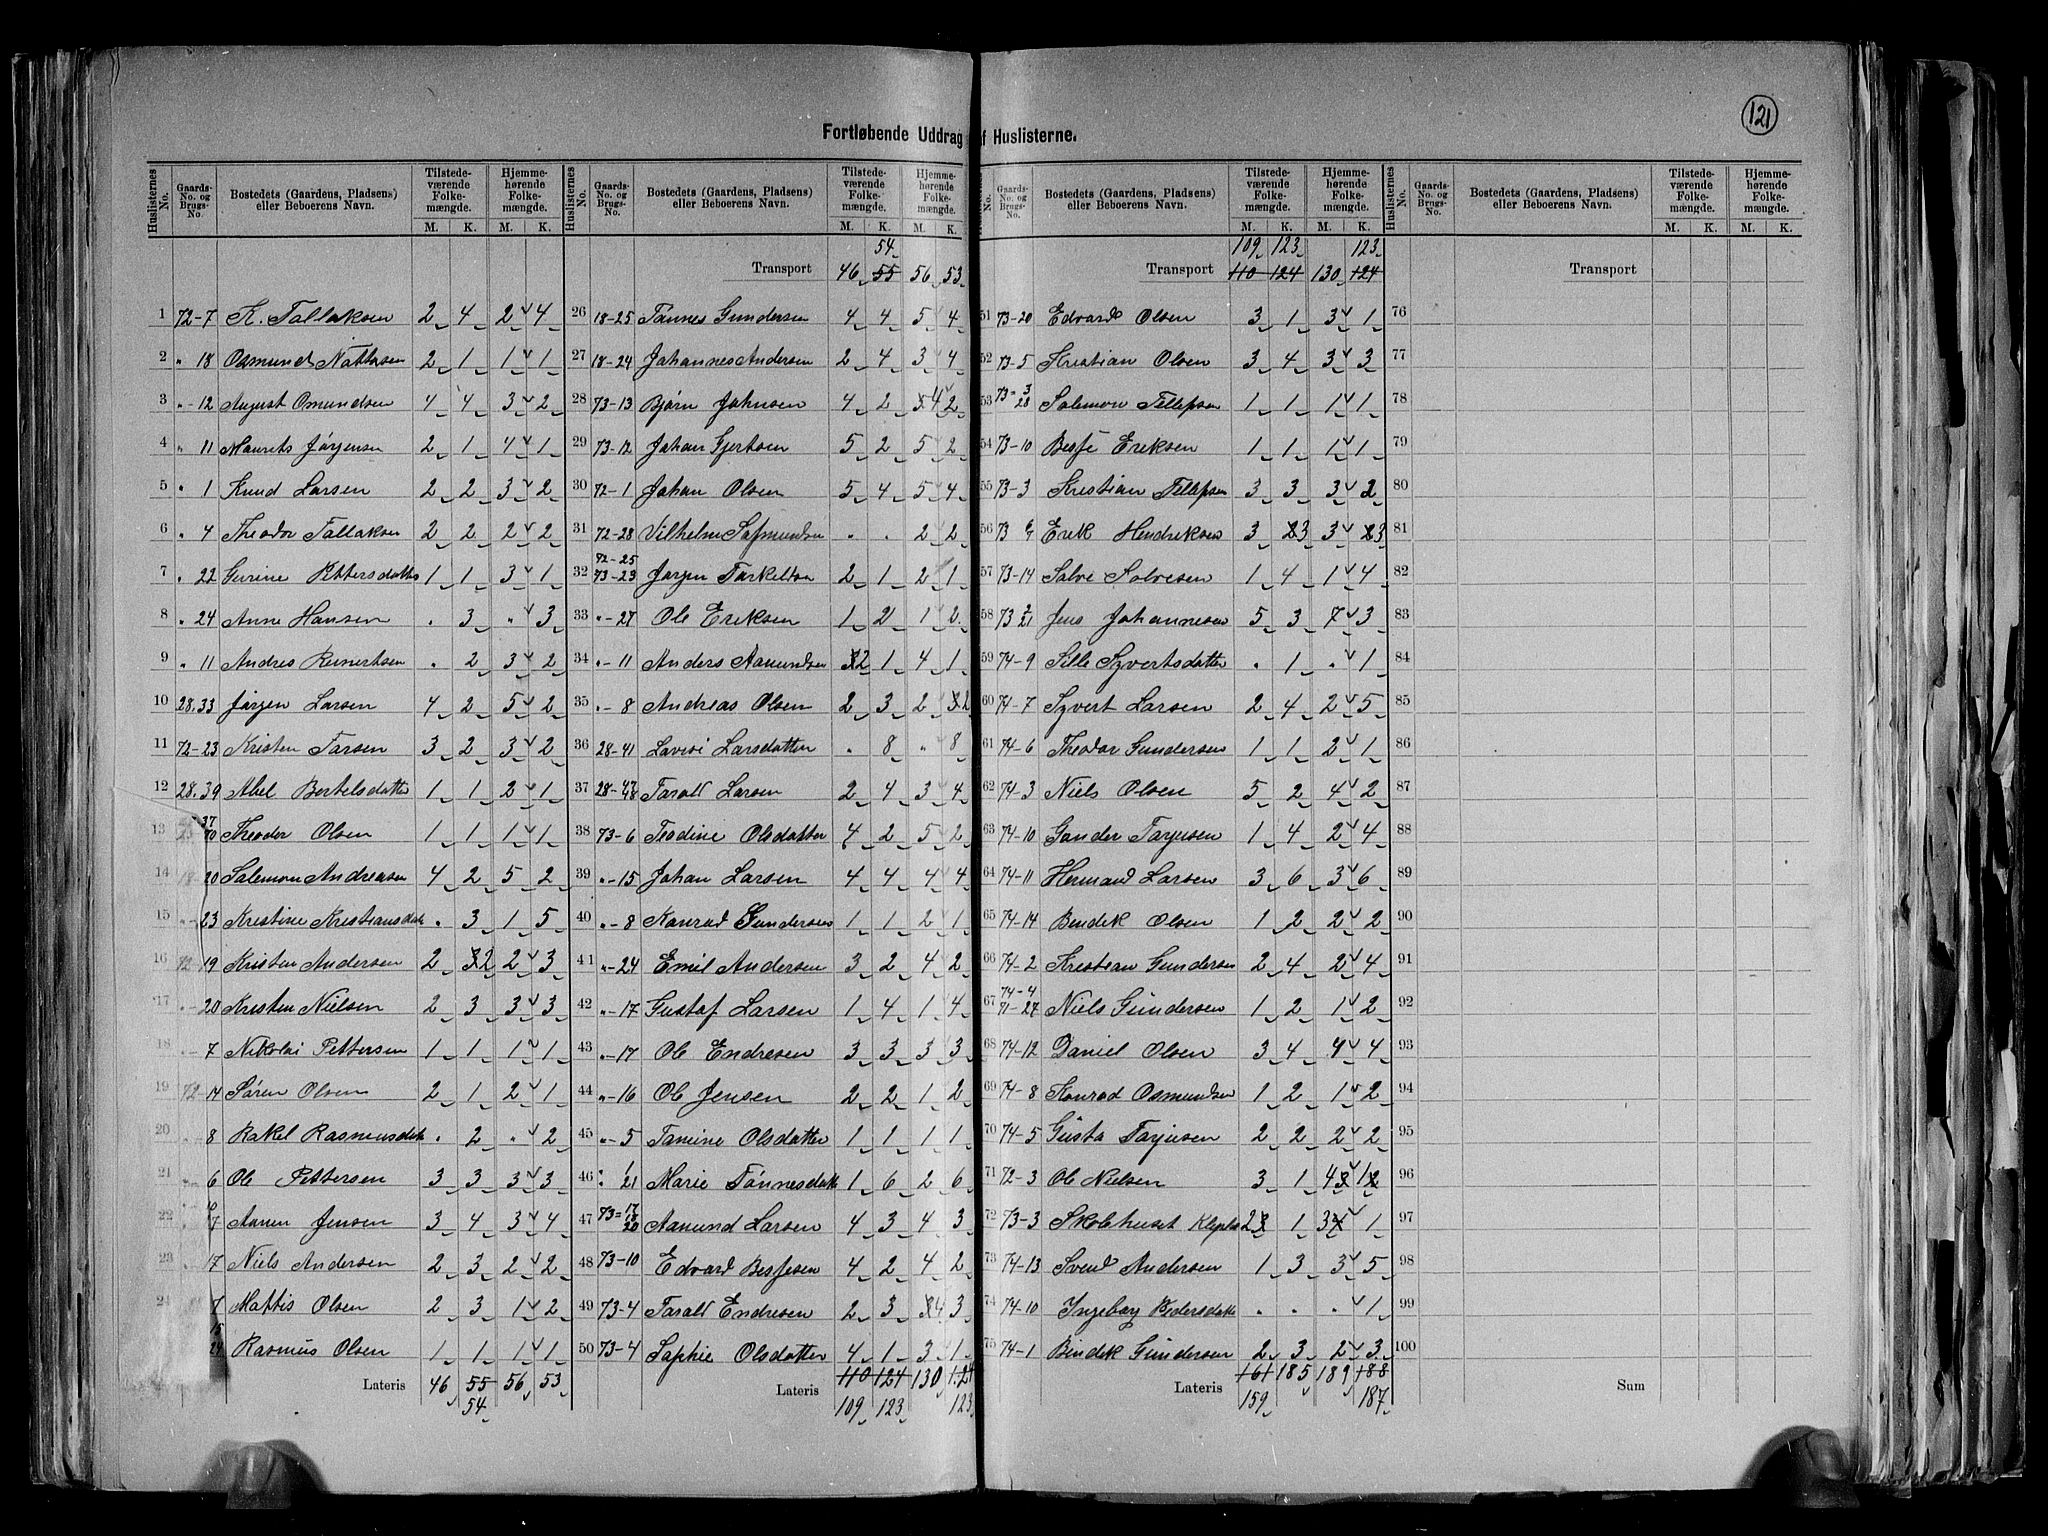 121
Fortløbende Uddrag af Huslisterne.
Huslisternes No. | Gaards-No. og Brugs-No. | Bostedets (Gaardens, Pladsens) eller Beboerens Navn. | Tilstedeværende Folkemængde. M. K. | Hjemmehørende Folkemængde. M. K.
1 72-7 K. Tallaksen 2 4 2 4
2 " 18 Osmund Nattersen 2 1 1 1
3 "-12 August Omundsen 4 4 3 2
4 " 11 Maurits Jørgensen 2 1 4 1
5 " 1 Knud Larsen 2 2 3 2
6 " 4 Theodor Tallaksen 2 2 2 2
7 " 22 Gurine Pettersdatter 1 1 3 1
8 " 24 Anne Hansen . 3 " 3
9 " 11 Andres Reinertsen . 2 3 2
10 28.33 Jørgen Larsen 4 2 5 2
11 72-23 Kristen Tarsen 3 2 3 2
12 28.39 Abel Bertelsdatter 1 1 2 1
13 Theodor Olsen 1 1 1 1
14 20 Salemon Andreasen 4 2 5 2
15 "-23 Kristine Kristiansdatt . 3 1 5
16 72-19 Kristen Andersen 2 2 2 3
17 "-20 Kristen Nielsen 2 3 3 3
18 -7 Nikolai Pettersen 1 1 1 1
19 72-14 Søren Olsen 2 1 2 1
20 8 Rakel Rasmusdatt . 2 " 2
21 6 Ole Pettersen 3 3 3 3
22 7 Aanen Jensen 3 4 3 4
23 17 Niels Andersen 2 3 2 2
24 7 Mattis Olsen 2 3 1 2
24 Rasmus Olsen 1 1 1 1
Lateris 46 55 56 53
54
Transport 46 55 56 53
54
26 18-25 Tønnes Gundersen 4 4 5 4
27 18-24 Johannes Andersen 2 4 3 4
28 73-13 Bjørn Johnsen 4 2 4 2
29 73-12 Johan Gjertsen 5 2 5 2
30 72-1 Johan Olsen 5 4 5 4
31 72-28 Vilhelm Sigmundsen . . 2 2
32 72-25 73-23 Jørgen Tarkeltsen 2 1 2 1
33 "-27 Ole Eriksen 1 2 1 2
34 "-11 Anders Aamundsen 2 1 4 1
35 "-8 Andreas Olsen 2 3 2 2
36 28-41 Lovise Larsdatter . 8 " 8
37 28- Taralt Larsen 2 4 3 4
38 73-6 Teodine Olsdatter 4 2 5 2
39 "-15 Johan Larsen 4 4 4 4
40 "-8 Konrad Gundersen 1 1 2 1
41 "-24 Emil Andersen 3 2 4 2
42 "-17 Gustaf Larsen 1 4 1 4
43 "-17 Ole Endresen 3 3 3 3
44 "-16 Ole Jensen 2 2 1 2
45 "-5 Tamine Olsdatter 1 1 1 1
46 21 Marie Tønnesdatt 1 6 2 6
47 73= 20 Aamund Larsen 4 3 4 3
48 73-10 Edvard Besjesen 4 2 4 2
49 73-4 Taralt Endresen 2 3 4 3
50 73-4 Sophie Olsdatter 4 1 3 1
Lateris 110 124 130 124
109 123 123
109 123 123
Transport 110 124 130 124
51 73-20 Edvard Olsen 3 1 3 1
52 73-5 Kristian Olsen 3 4 3 3
53 73= 3 28 Salemon Tellefsen 1 1 1 1
54 73-10 Besje Eriksen 1 1 1 1
55 73-3 Kristian Tellefsen 3 3 3 2
56 73 Erik Hendriksen 3 3 3 3
57 73-14 Salve Salvesen 1 4 1 4
58 73 2 21 Jens Johannesen 5 3 7 3
59 74-9 Sille Syvertsdatter . 1 " 1
60 74-7 Syvert Larsen 2 4 2 5
61 74-6 Theodor Gundersen 1 1 2 1
62 74-3 Niels Olsen 5 2 4 2
63 74-10 Gunder Tarjusen 1 4 2 4
64 74-11 Hermand Larsen 3 6 3 6
65 74-14 Bendik Olsen 1 2 2 2
66 74-2 Kristian Gundersen 2 4 2 4
67 74-4 71-27 Niels Gundersen 1 2 1 2
68 74-12 Daniel Olsen 3 4 4 4
69 74-8 Konrad Osmundsen 1 2 1 2
70 74-5 Gusta Tarjusen 2 2 2 2
71 72-3 Ole Nielsen 3 1 4 1
72 73-3 Skolehuset 2 1 3 1
73 74-13 Svend Andersen 1 3 3 5
74 74-10 Ingeborg Pedersdatt . . . 1
75 74-1 Bendik Gundersen 2 3 2 3
Lateris 161 185 189 188
159 187
Transport
76
77
78
79
80
81
82
83
84
85
86
87
88
89
90
91
92
93
94
95
96
97
98
99
100
Sum